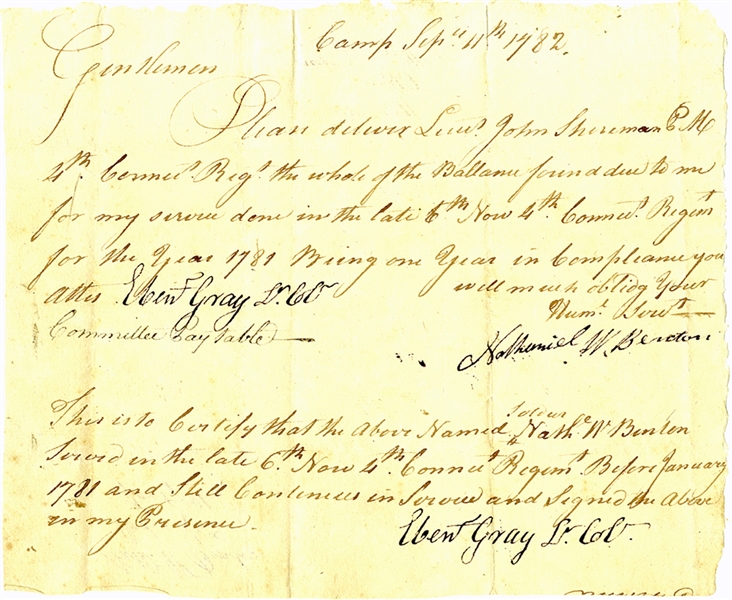 Camp Sepr 11th 1782.
Gentlemen
Please deliver Lieut. John Shereman P M
4th. Connect. Regt. the whole of the Ballance found due to me
for my service done in the late 6th Now 4th. Connect. Regimt
for the Year 1781 Being one Year in Compleance you
Attest Ebenr Gray Lt. Col. will much oblidg Your
Huml Servt
Committee Pay table Nathaniel W. Benton
This is to Certify that the Above Named Soldier Nathl W Benton
Served in the late 6th Now 4th. Connect Regimt. Before January
1781 and Still Contenues in Service and Signed the Above
in my Presence
Ebenr Gray Lt. Col.